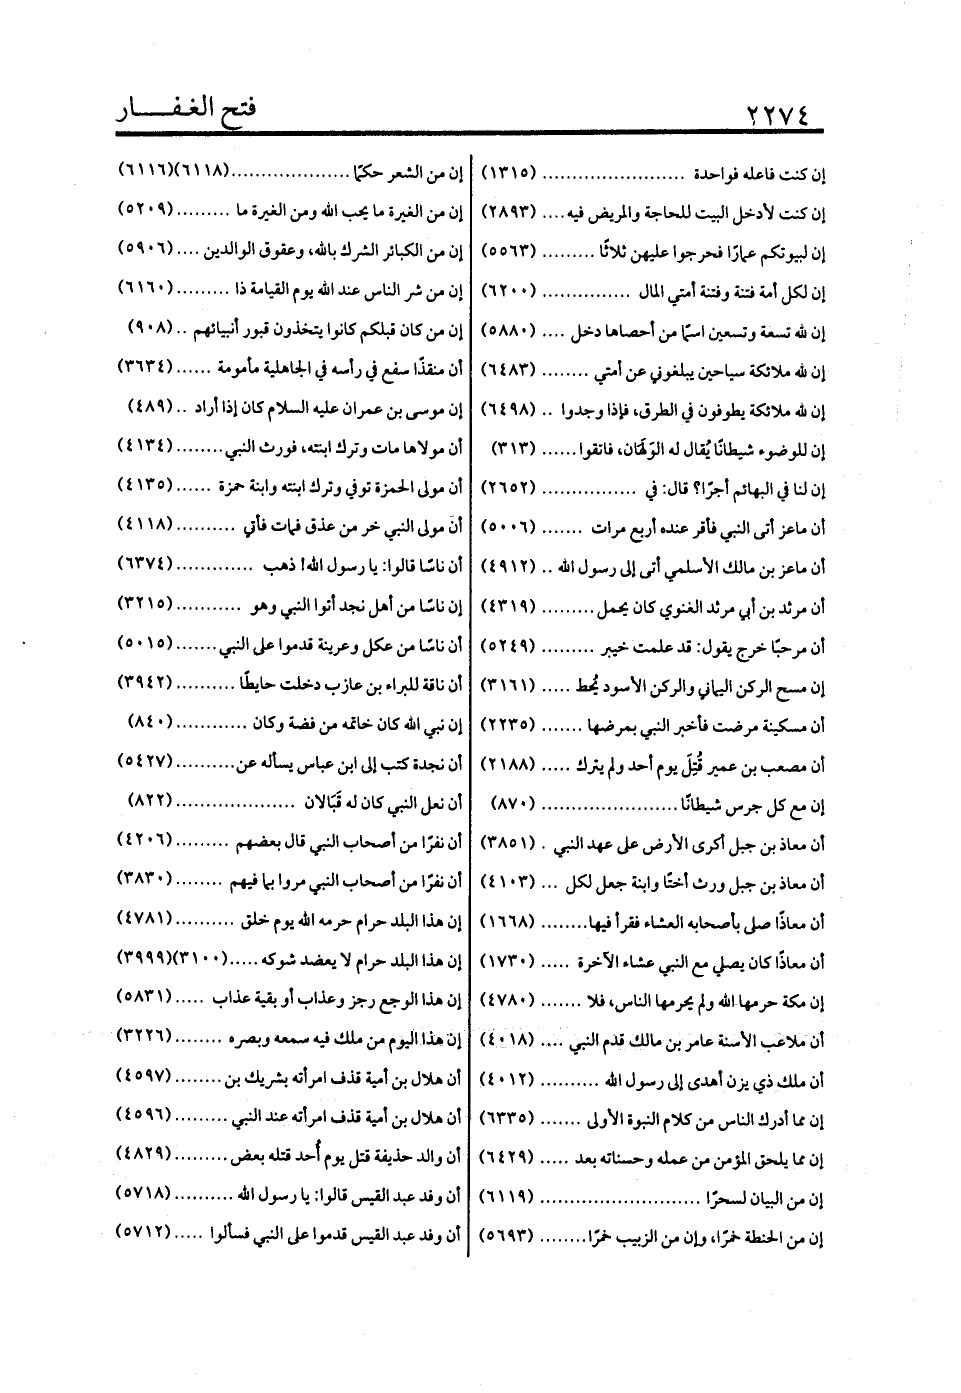 ٢٢٧٤
فتح الغفـــــار
إن كنت فاعله فواحدة ........................ (١٣١٥)
إن كنت لأدخل البيت للحاجة والمريض فيه.... (٢٨٩٣)
إن لبيوتكم عمارًا فحرجوا عليهن ثلاثًا ......... (٥٥٦٣)
إن لكل أمة فتنة وفتنة أمتي المال ............... (٦٢٠٠)
إن لله تسعة وتسعين اسمًا من أحصاها دخل .... (٥٨٨٠)
إن لله ملائكة سياحين يبلغوني عن أمتي ........ (٦٤٨٣)
إن لله ملائكة يطوفون في الطرق، فإذا وجدوا .. (٦٤٩٨)
إن للوضوء شيطانًا يُقال له الوَلَهَان، فاتقوا...... (٣١٣)
إن لنا في البهائم أجرًا؟ قال: في ................ (٢٦٥٢)
أن ماعز أتى النبي فأقر عنده أربع مرات ....... (٥٠٠٦)
أن ماعز بن مالك الأسلمي أتى إلى رسول الله .. (٤٩١٢)
أن مرثد بن أبي مرثد الغنوي كان يحمل......... (٤٣١٩)
أن مرحبًا خرج يقول: قد علمت خيبر ......... (٥٢٤٩)
إن مسح الركن اليماني والركن الأسود يُحط ..... (٣١٦١)
أن مسكينة مرضت فأخبر النبي بمرضها ....... (٢٢٣٥)
أن مصعب بن عمير قُتِلَ يوم أحد ولم يترك ..... (٢١٨٨)
إن مع كل جرس شيطانًا....................... (٨٧٠)
أن معاذ بن جبل أكرى الأرض على عهد النبي . (٣٨٥١)
أن معاذ بن جبل ورث أختًا وابنة جعل لكل ... (٤١٠٣)
أن معاذًا صلى بأصحابه العشاء فقرأ فيها........ (١٦٦٨)
أن معاذًا كان يصلي مع النبي عشاء الآخرة ..... (١٧٣٠)
إن مكة حرمها الله ولم يحرمها الناس، فلا ....... (٤٧٨٠)
أن ملاعب الأسنة عامر بن مالك قدم النبي .... (٤٠١٨)
أن ملك ذي يزن أهدى إلى رسول الله .......... (٤٠١٢)
إن مما أدرك الناس من كلام النبوة الأولى ....... (٦٣٣٥)
إن مما يلحق المؤمن من عمله وحسناته بعد ..... (٦٤٢٩)
إن من البيان لسحرًا ........................... (٦١١٩)
إن من الحنطة خمرًا، وإن من الزبيب خمرًا........ (٥٦٩٣)
إن من الشعر حكمًا ....................(٦١١٨)(٦١١٦)
إن من الغيرة ما يحب الله ومن الغيرة ما ......... (٥٢٠٩)
إن من الكبائر الشرك بالله، وعقوق الوالدين .... (٥٩٠٦)
إن من شر الناس عند الله يوم القيامة ذا ......... (٦١٦٠)
إن من كان قبلكم كانوا يتخذون قبور أنبيائهم .. (٩٠٨)
أن منقذًا سفع في رأسه في الجاهلية مأمومة ...... (٣٦٣٤)
إن موسى بن عمران عليه السلام كان إذا أراد .. (٤٨٩)
أن مولاها مات وترك ابنته، فورث النبي........ (٤١٣٤)
أن مولى الحمزة توفي وترك ابنته وابنة حمزة ...... (٤١٣٥)
أن مولى النبي خر من عذق فمات فأتي .......... (٤١١٨)
أن ناسًا قالوا: يا رسول الله! ذهب ............. (٦٣٧٤)
إن ناسًا من أهل نجد أتوا النبي وهو ........... (٣٢١٥)
أن ناسًا من عكل وعرينة قدموا على النبي....... (٥٠١٥)
أن ناقة للبراء بن عازب دخلت حايطًا .......... (٣٩٤٢)
إن نبي الله كان خاتمه من فضة وكان ............ (٨٤٠)
أن نجدة كتب إلى ابن عباس يسأله عن.......... (٥٤٢٧)
أن نعل النبي كان له قَبَالان .................... (٨٢٢)
أن نفرًا من أصحاب النبي قال بعضهم ......... (٤٢٠٦)
أن نفرًا من أصحاب النبي مروا بما فيهم ........ (٣٨٣٠)
إن هذا البلد حرام حرمه الله يوم خلق .......... (٤٧٨١)
إن هذا البلد حرام لا يعضد شوكه.....(٣١٠٠)(٣٩٩٩)
إن هذا الوجع رجز وعذاب أو بقية عذاب ..... (٥٨٣١)
إن هذا اليوم من ملك فيه سمعه وبصره ........ (٣٢٢٦)
أن هلال بن أمية قذف امرأته بشريك بن ........ (٤٥٩٧)
أن هلال بن أمية قذف امرأته عند النبي ......... (٤٥٩٦)
أن والد حذيفة قتل يوم أُحد قتله بعض ......... (٤٨٢٩)
أن وفد عبد القيس قالوا: يا رسول الله .......... (٥٧١٨)
أن وفد عبد القيس قدموا على النبي فسألوا ..... (٥٧١٢)